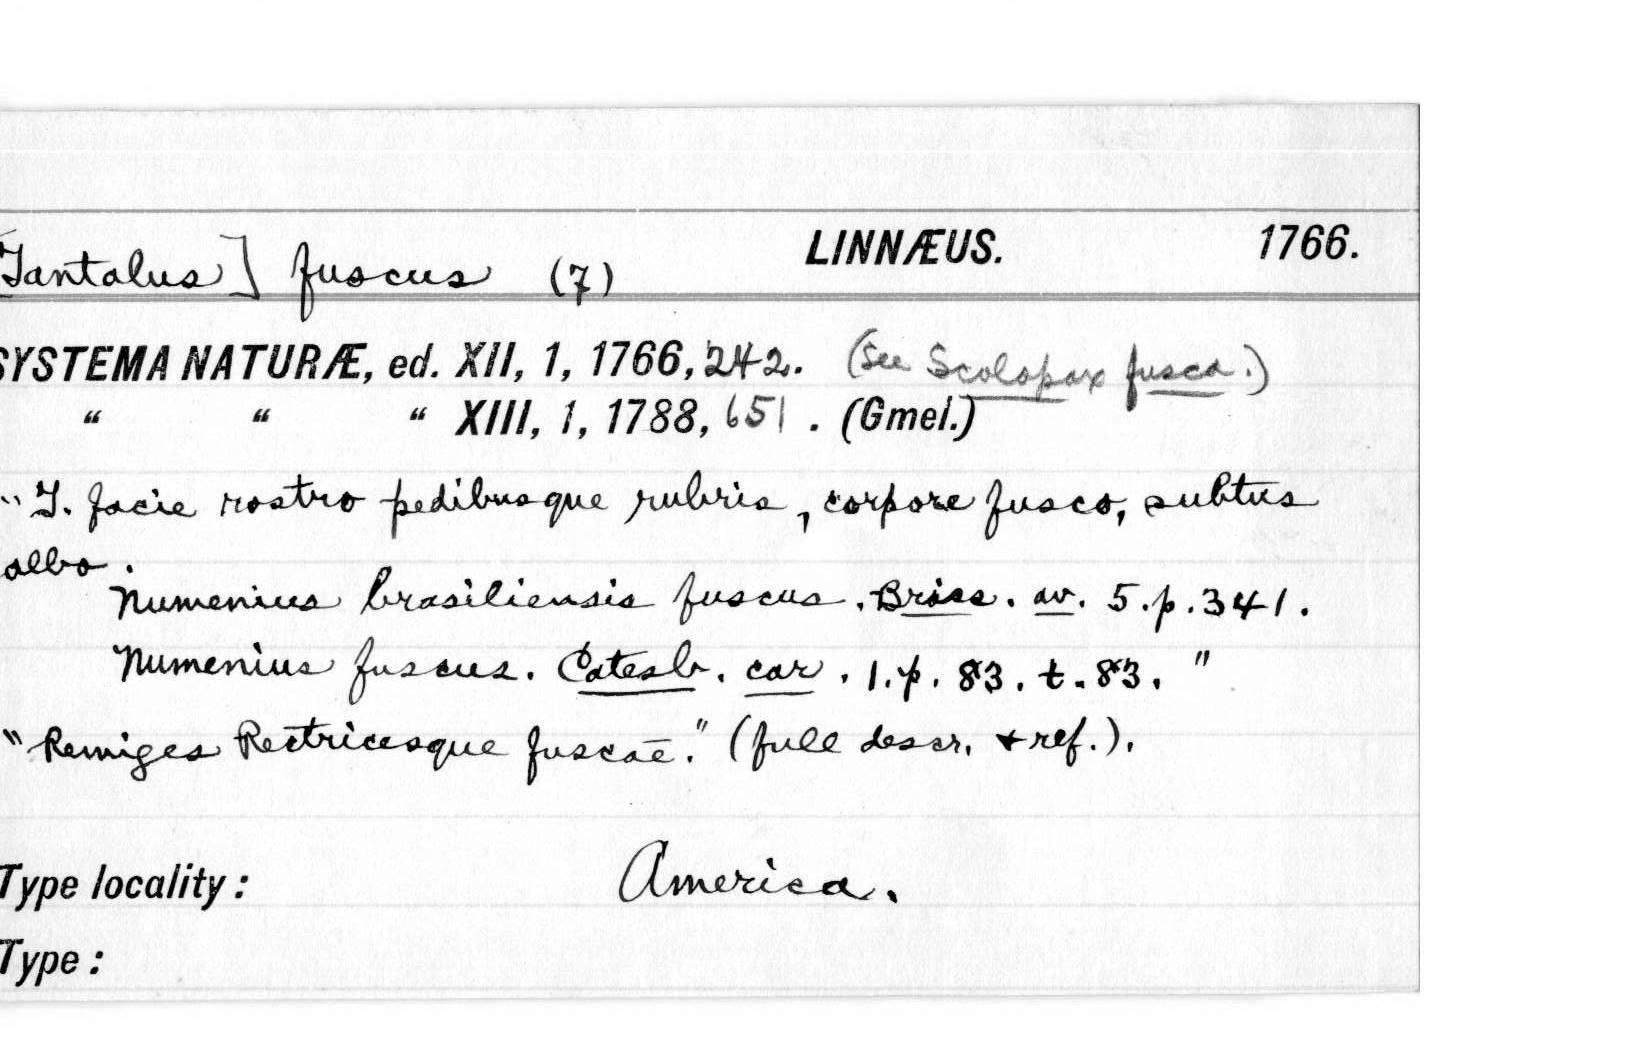 [Tantalus] fuscus (7) LINNÆUS. 1766.
SYSTEMA NATURÆ, ed. XII, 1, 1766, 242. (See Scolopax fusca.)
“ “ “ XIII, 1, 1788, 651. (Gmel.)
"T. facie rostro pedibusque rubris, corpore fusco, subtus
albo.
Numenius brasiliensis fuscus. Briss. av. 5. p. 341.
Numenius fuscus. Catesb. car. 1. p. 83. t. 83."
"Remiges Rectricesque fuscae." (full descr. + ref.).
Type locality: America.
Type: